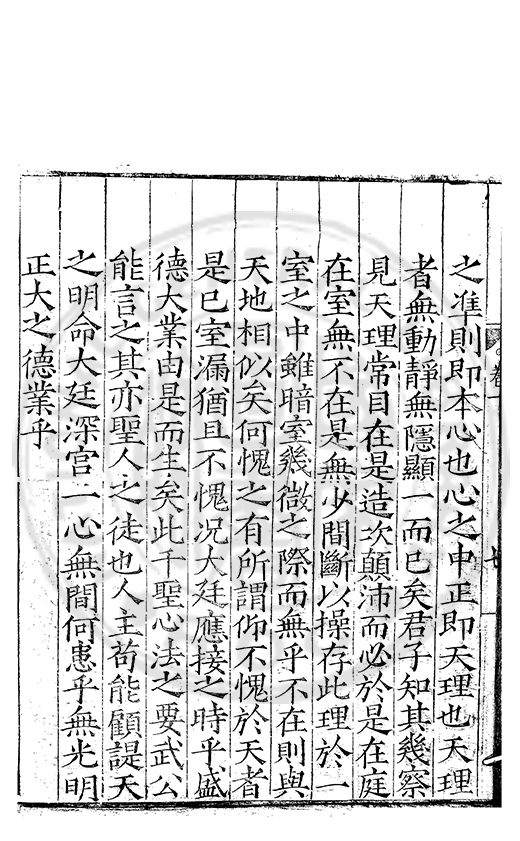 之準則即本心也心之中正即天理也天理
者無動靜無隱顯一而已矣君子知其幾察
見天理常目在是造次顛沛而必於是在庭
在室無不在是無少間斷以操存此理於一
室之中雖暗室幾微之際而無乎不在則與
天地相似矣何愧之有所謂仰不愧於天者
是已室漏猶且不愧况大廷應接之時乎盛
德大業由是而生矣此千聖心法之要武公
能言之其亦聖人之徒也人主苟能顧諟天
之明命大廷深宫一心無間何患乎無光明
正大之德業乎